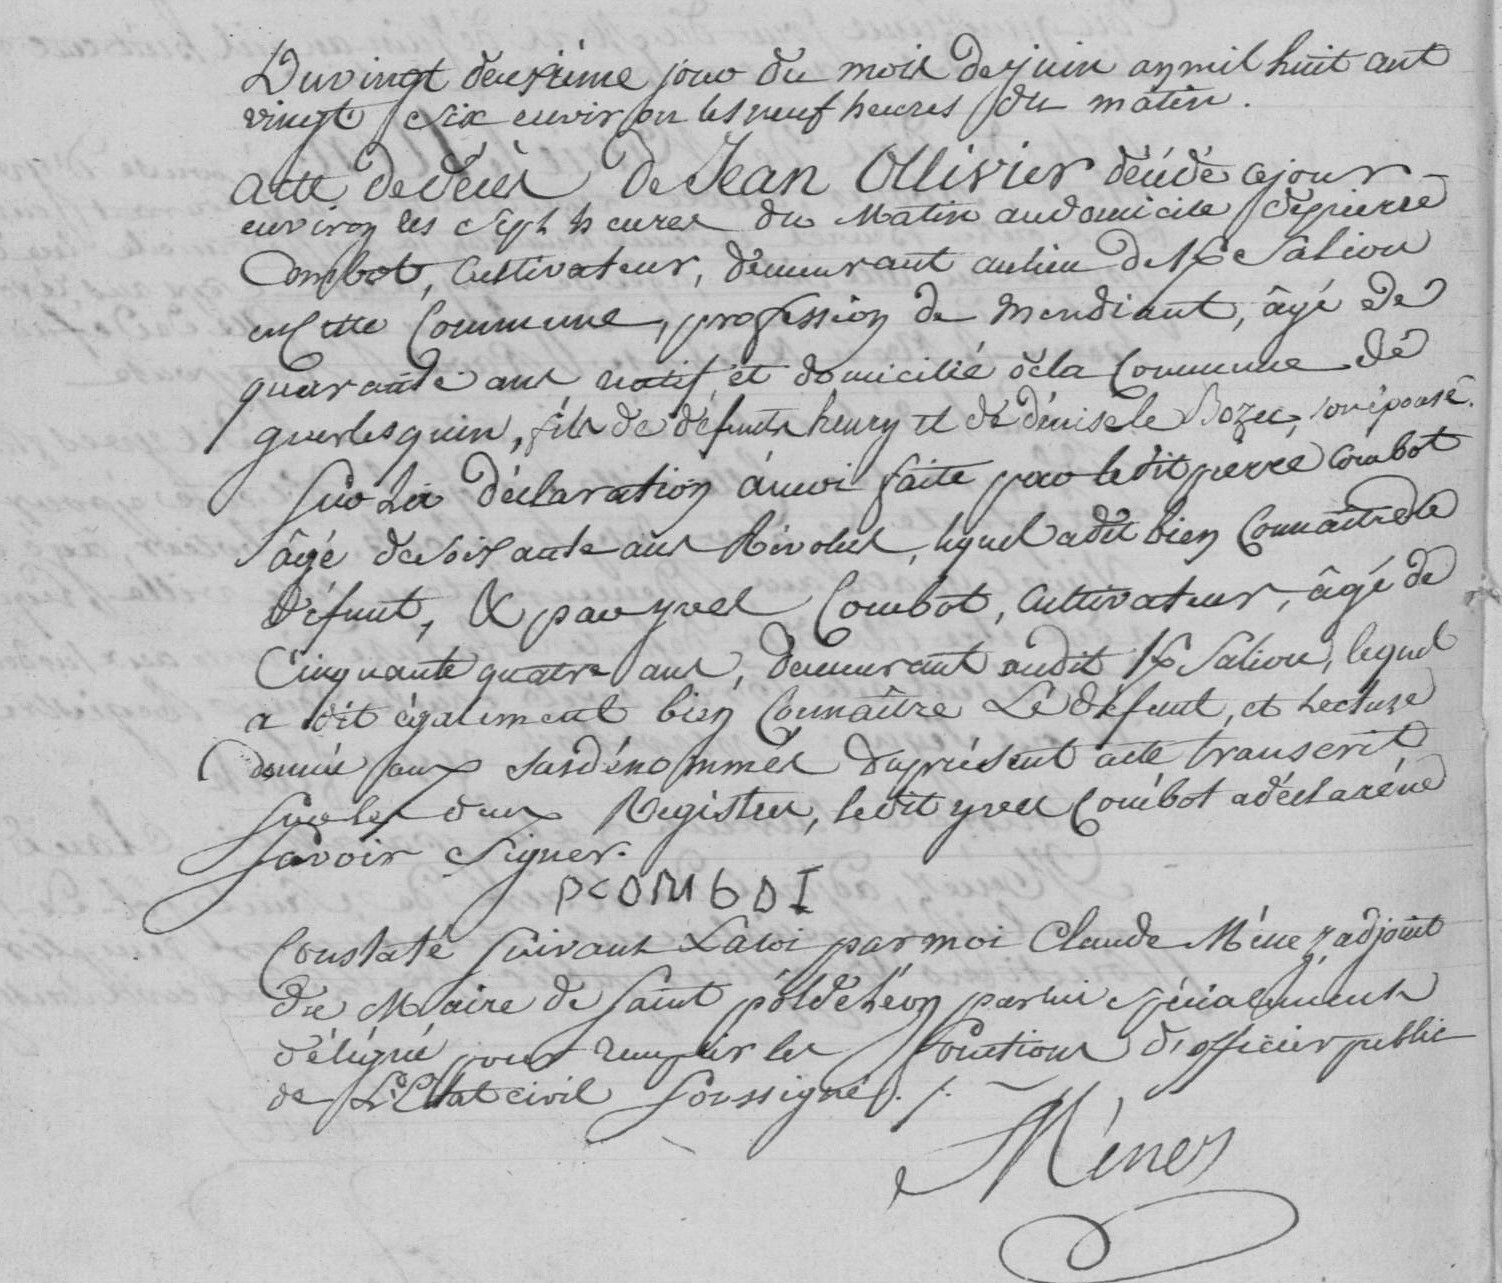 Du vingt deuxième jour du mois de juin an mil huit cent
vingt six environ les neuf heures du matin.
acte de décès de Jean Ollivier décédé ce jour
environ les sept heures du Matin au domicile de pierre
Combot, Cultivateur, demeurant au lieu de Kersaliou
en cette Commune, profession de Mendiant, âgé de
quarante ans natif et domicilié de la Commune de
guerlesquin, fils de défunts henry et de dénise le Bozec, son épouse.
Sur La déclaration à moi faite par le dit pierre Combot
âgé de Soixante ans Révolus, lequel a dit bien Connaître le
défunt, & par yves Combot, Cultivateur, âgé de
Cinquante quatre ans, demeurant audit Kersaliou, lequel
a dit également bien Connaître Le défunt, et Lecture
donnée aux Susdénommés du présent acte transcrit
Sur les deux Registres, le dit yves Combot a déclaré ne
Savoir Signer.
PCOMBOT
Constaté Suivant La loi par moi Claude Ménez adjoint
du Maire de Saint pôl de Léon par lui spécialement
délégué pour remplir les fonctions d'officier public
de L'Etat civil Soussigné ./.
Ménez